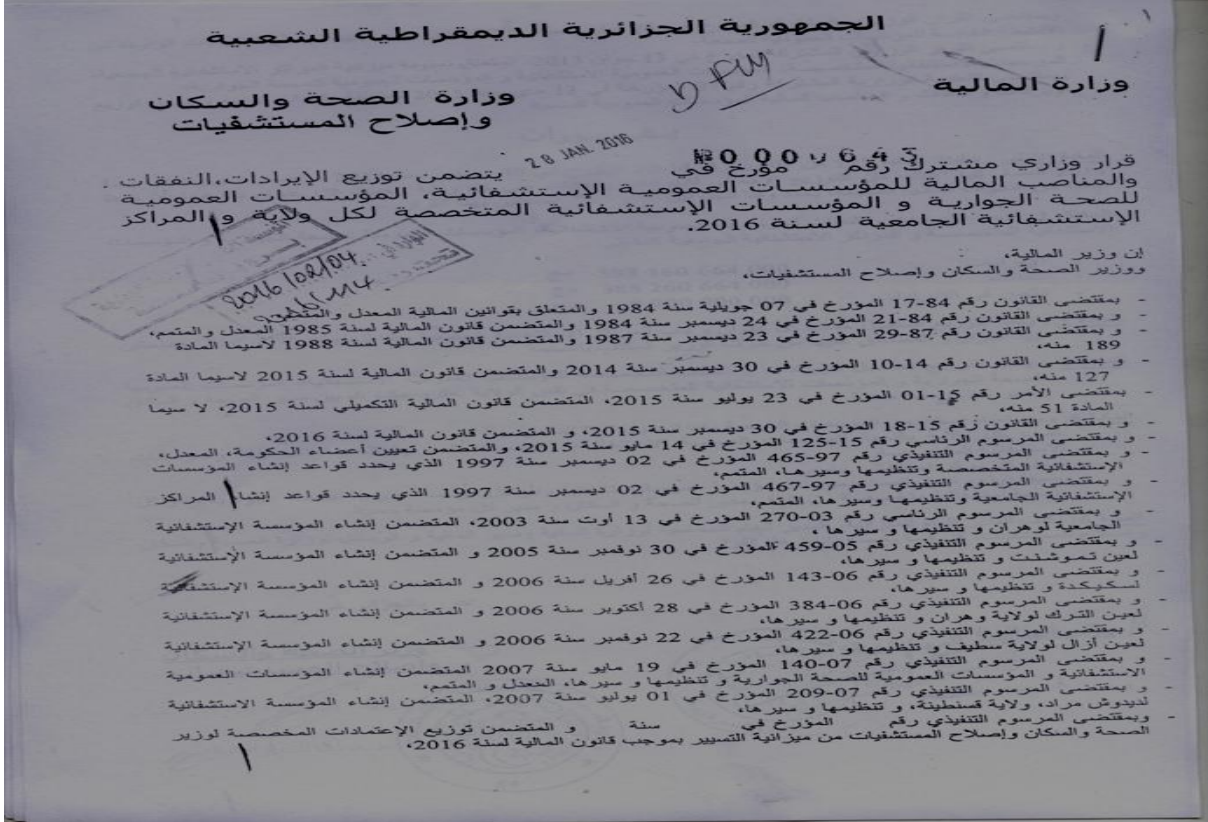 الجمهورية الجزائرية الديمقراطية الشعبية
وزارة المالية
وزارة الصحة والسكان
وإصلاح المستشفيات
28 JAN. 2016
قرار وزاري مشترك رقم مؤرخ في يتضمن توزيع الإيرادات،النفقات
والمناصب المالية للمؤسسات العمومية الإستشفائية، المؤسسات العمومية
للصحة الجوارية و المؤسسات الإستشفائية المتخصصة لكل ولاية و المراكز
الإستشفائية الجامعية لسنة 2016.
2016/02/04
إن وزير المالية،
ووزير الصحة والسكان وإصلاح المستشفيات،
- بمقتضى القانون رقم 84-17 المؤرخ في 07 جويلية سنة 1984 والمتعلق بقوانين المالية المعدل والمتمم،
- و بمقتضى القانون رقم 84-21 المؤرخ في 24 ديسمبر سنة 1984 والمتضمن قانون المالية لسنة 1985 المعدل والمتمم،
- و بمقتضى القانون رقم 87-29 المؤرخ في 23 ديسمبر سنة 1987 والمتضمن قانون المالية لسنة 1988 لاسيما المادة
189 منه،
- و بمقتضى القانون رقم 14-10 المؤرخ في 30 ديسمبر سنة 2014 والمتضمن قانون المالية لسنة 2015 لاسيما المادة
127 منه،
- بمقتضى الأمر رقم 15-01 المؤرخ في 23 يوليو سنة 2015، المتضمن قانون المالية التكميلي لسنة 2015، لا سيما
المادة 51 منه،
- و بمقتضى القانون رقم 15-18 المؤرخ في 30 ديسمبر سنة 2015، و المتضمن قانون المالية لسنة 2016،
- و بمقتضى المرسوم الرئاسي رقم 15-125 المؤرخ في 14 مايو سنة 2015، والمتضمن تعيين أعضاء الحكومة، المعدل،
- و بمقتضى المرسوم التنفيذي رقم 97-465 المؤرخ في 02 ديسمبر سنة 1997 الذي يحدد قواعد إنشاء المؤسسات
الإستشفائية المتخصصة وتنظيمها وسيرها، المتمم،
- و بمقتضى المرسوم التنفيذي رقم 97-467 المؤرخ في 02 ديسمبر سنة 1997 الذي يحدد قواعد إنشاء المراكز
الإستشفائية الجامعية وتنظيمها وسيرها، المتمم،
- و بمقتضى المرسوم الرئاسي رقم 03-270 المؤرخ في 13 أوت سنة 2003، المتضمن إنشاء المؤسسة الإستشفائية
الجامعية لوهران و تنظيمها و سيرها ،
- و بمقتضى المرسوم التنفيذي رقم 05-459 المؤرخ في 30 نوفمبر سنة 2005 و المتضمن إنشاء المؤسسة الإستشفائية
لعين تموشنت و تنظيمها و سيرها،
- و بمقتضى المرسوم التنفيذي رقم 06-143 المؤرخ في 26 أفريل سنة 2006 و المتضمن إنشاء المؤسسة الإستشفائية
لسكيكدة و تنظيمها و سيرها،
- و بمقتضى المرسوم التنفيذي رقم 06-384 المؤرخ في 28 أكتوبر سنة 2006 و المتضمن إنشاء المؤسسة الإستشفائية
لعين الترك لولاية وهران و تنظيمها و سيرها،
- و بمقتضى المرسوم التنفيذي رقم 06-422 المؤرخ في 22 نوفمبر سنة 2006 و المتضمن إنشاء المؤسسة الإستشفائية
لعين أزال لولاية سطيف و تنظيمها و سيرها،
- و بمقتضى المرسوم التنفيذي رقم 07-140 المؤرخ في 19 مايو سنة 2007 المتضمن إنشاء المؤسسات العمومية
الاستشفائية و المؤسسات العمومية للصحة الجوارية و تنظيمها و سيرها، المعدل و المتمم،
- و بمقتضى المرسوم التنفيذي رقم 07-209 المؤرخ في 01 يوليو سنة 2007، المتضمن إنشاء المؤسسة الاستشفائية
لديدوش مراد، ولاية قسنطينة، و تنظيمها و سيرها،
- وبمقتضى المرسوم التنفيذي رقم المؤرخ في سنة و المتضمن توزيع الإعتمادات المخصصة لوزير
الصحة والسكان وإصلاح المستشفيات من ميزانية التسيير بموجب قانون المالية لسنة 2016،